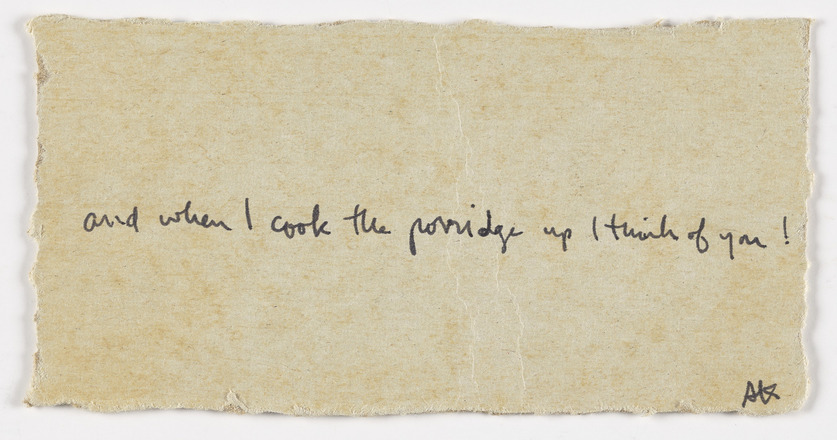 and when I cook the porridge up I think of you !
AK